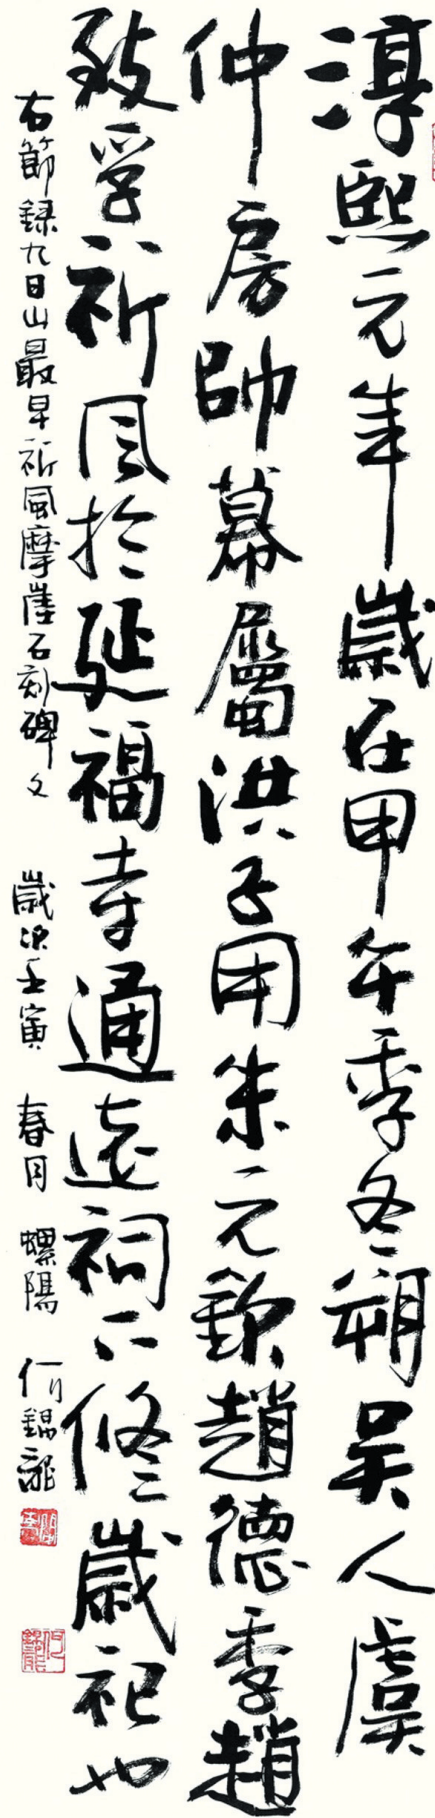 淳熙元年歲在甲午季冬朔吴人虞
仲房帥幕屬洪子用朱元欽趙德季趙
致孚祈风於延福寺通遠祠下修歲祀也
右節録九日山最早祈風摩崖石刻碑文
歲次壬寅 春月 螺陽 何錦龍